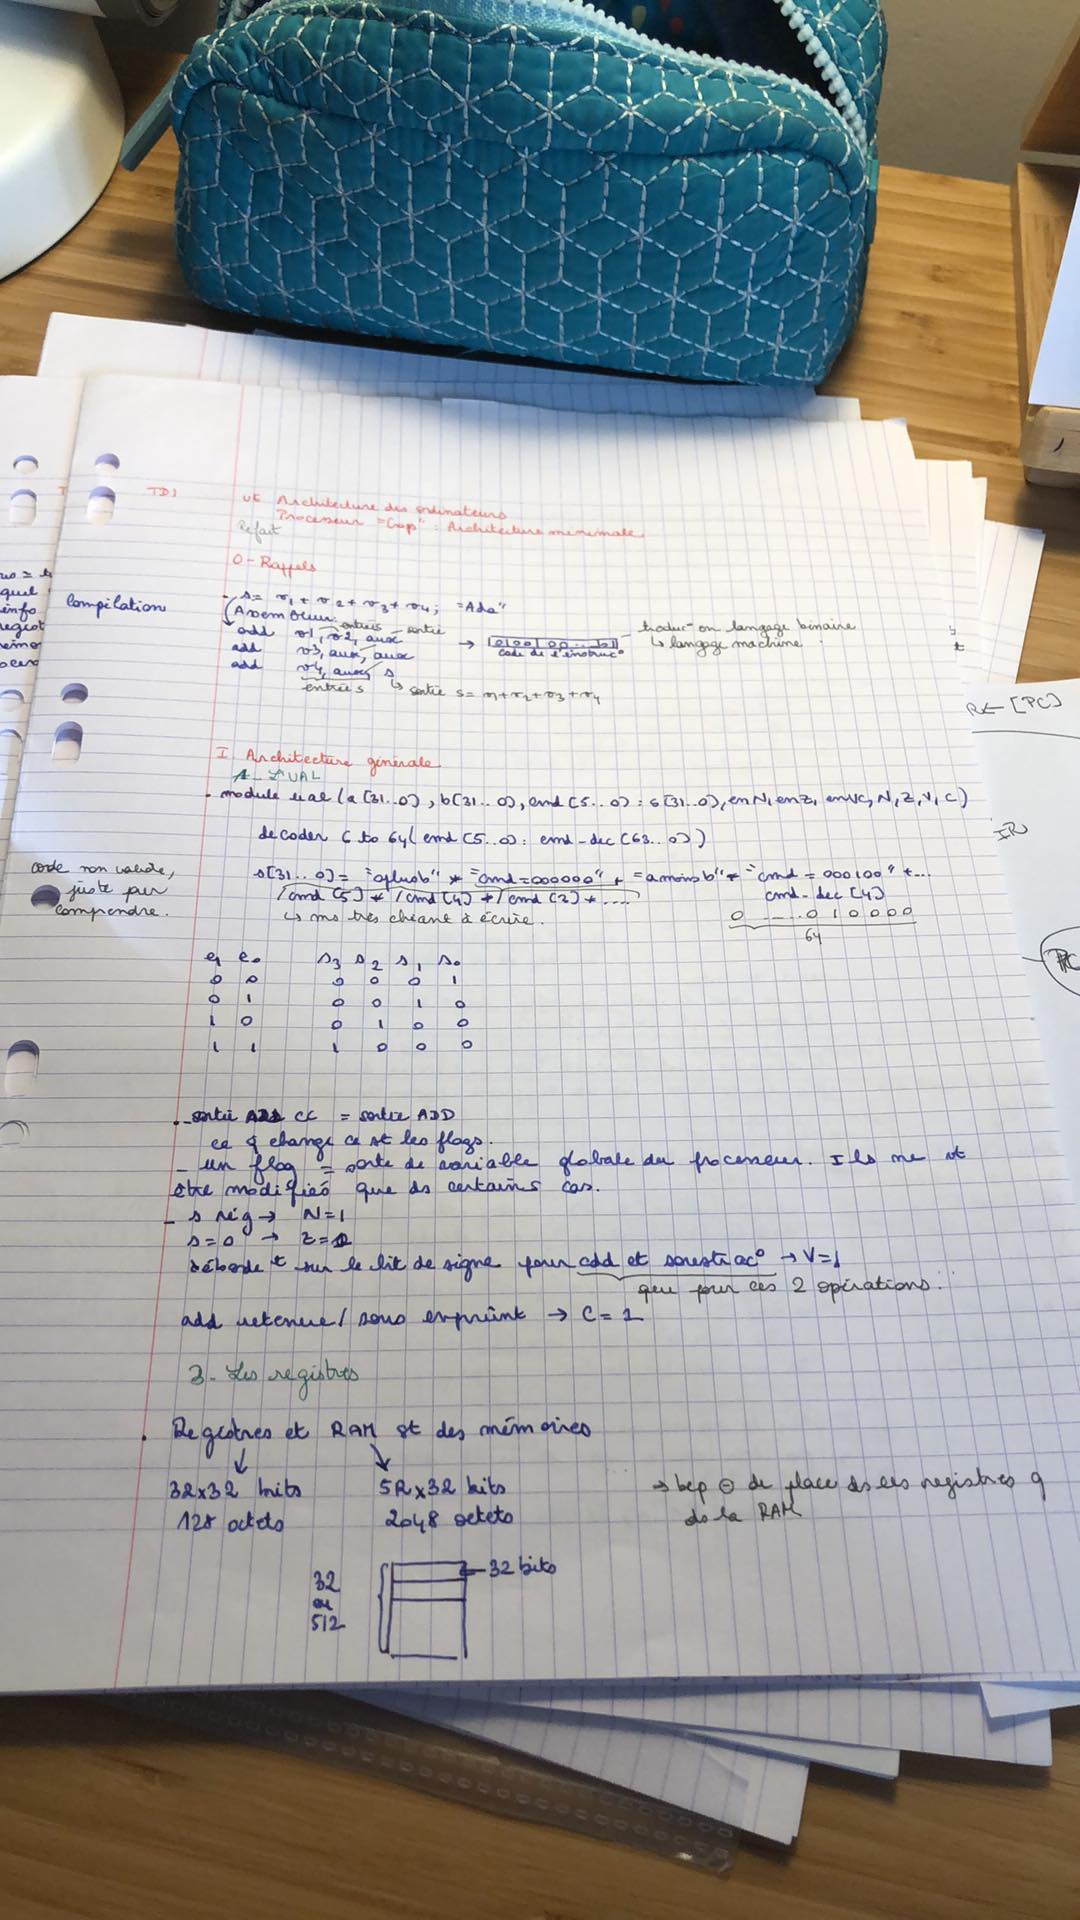 TD1
Architecture des ordinateurs
Processeur "Crap" : Architecture minimale
Refait
0 - Rappels
Compilation
s = r1 + r2 + r3 + r4; "Ada"
Assembleur: entrées sortie
add r1, r2, aux → 0100 00...b1 traduc° en langage binaire
add r3, aux, aux code de l'instruc° ↳ langage machine
add r4, aux, s
entrées ↳ sortie s = r1+r2+r3+r4
I. Architecture générale
A - L'UAL
- module ual (a[31..0], b[31..0], cmd[5..0] : s[31..0], enN, enZ, enVC, N, Z, V, C)
decoder 6 to 64( cmd[5..0] : cmd-dec[63..0])
code non valide,
juste pour
comprendre.
s[31..0] = "aplusb" * "cmd=000000" + "amoinsb" * "cmd = 000100" * ...
/cmd[5] * /cmd[4] * /cmd[2] * .... cmd-dec[4]
↳ ms très chiant à écrire. 0 ....0 1 0 0 0 0
64
e1 e0 s3 s2 s1 s0
0 0 0 0 0 1
0 1 0 0 1 0
1 0 0 1 0 0
1 1 1 0 0 0
- sortie CC = sortie ADD
ce q change ce st les flags.
- un flag = sorte de variable globale du processeur. Ils ne
être modifiés que ds certains cas.
- s nég → N=1
s=0 → Z=
déborde t sur le bit de signe pour add et soustrac° → V=1
que pour ces 2 opérations.
add retenue / sous emprunt → C = 1
- Les registres
. Registres et RAM st des mémoires
32x32 bits x32 bits → bcp ⊖ de place ds les registres q
128 octets 2048 octets ds la RAM
32 32 bits
ou
512
R← [PC]
IR